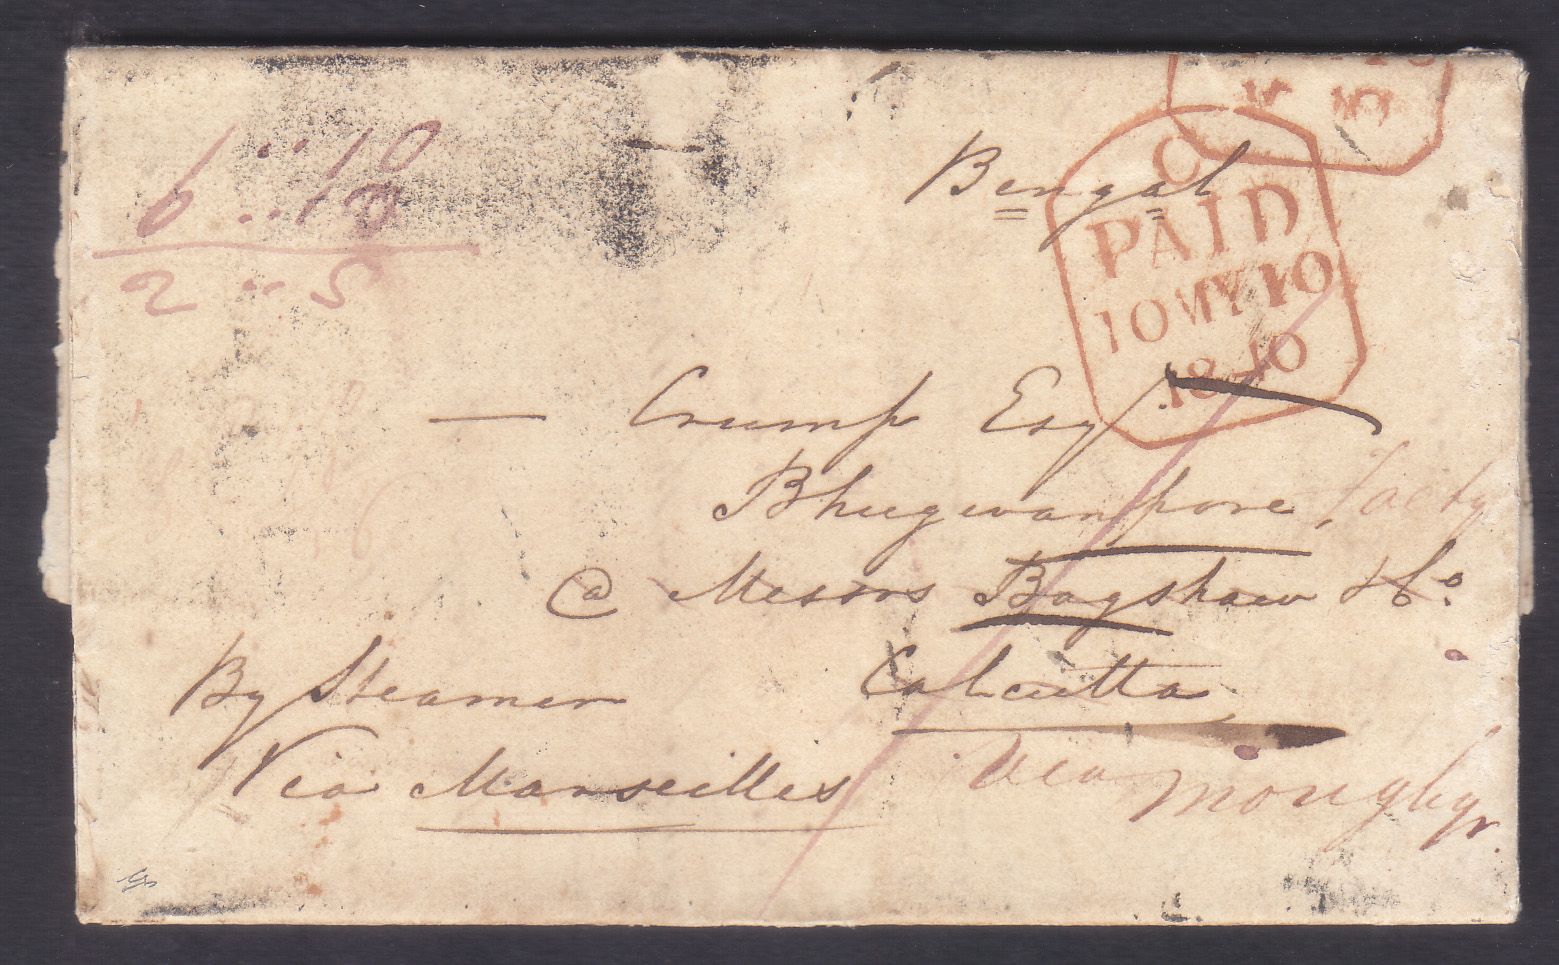 Bengal
C
PAID
10MY10
1840
2 5
— Crump Esqr
Bhugwanpore Facty
@ Messrs Bagshaw & Co.
Calcutta
By Steamer
Via Marseilles
Via Monghyr.